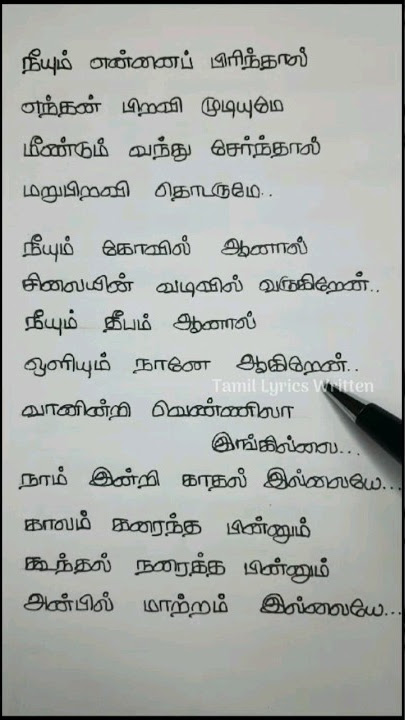 நீயும் என்னைப் பிரிந்தால்
எந்தன் பிறவி முடியுமே
மீண்டும் வந்து சேர்ந்தால்
மறுபிறவி தொடருமே..
நீயும் கோவில் ஆனால்
சிலையின் வடிவில் வருகிறேன்..
நீயும் தீபம் ஆனால்
ஒளியும் நானே ஆகிறேன்..
Tamil Lyrics Written
வானின்றி வெண்ணிலா
இங்கில்லை...
நாம் இன்றி காதல் இல்லையே...
காலம் கரைந்த பின்னும்
கூந்தல் நரைத்த பின்னும்
அன்பில் மாற்றம் இல்லையே...